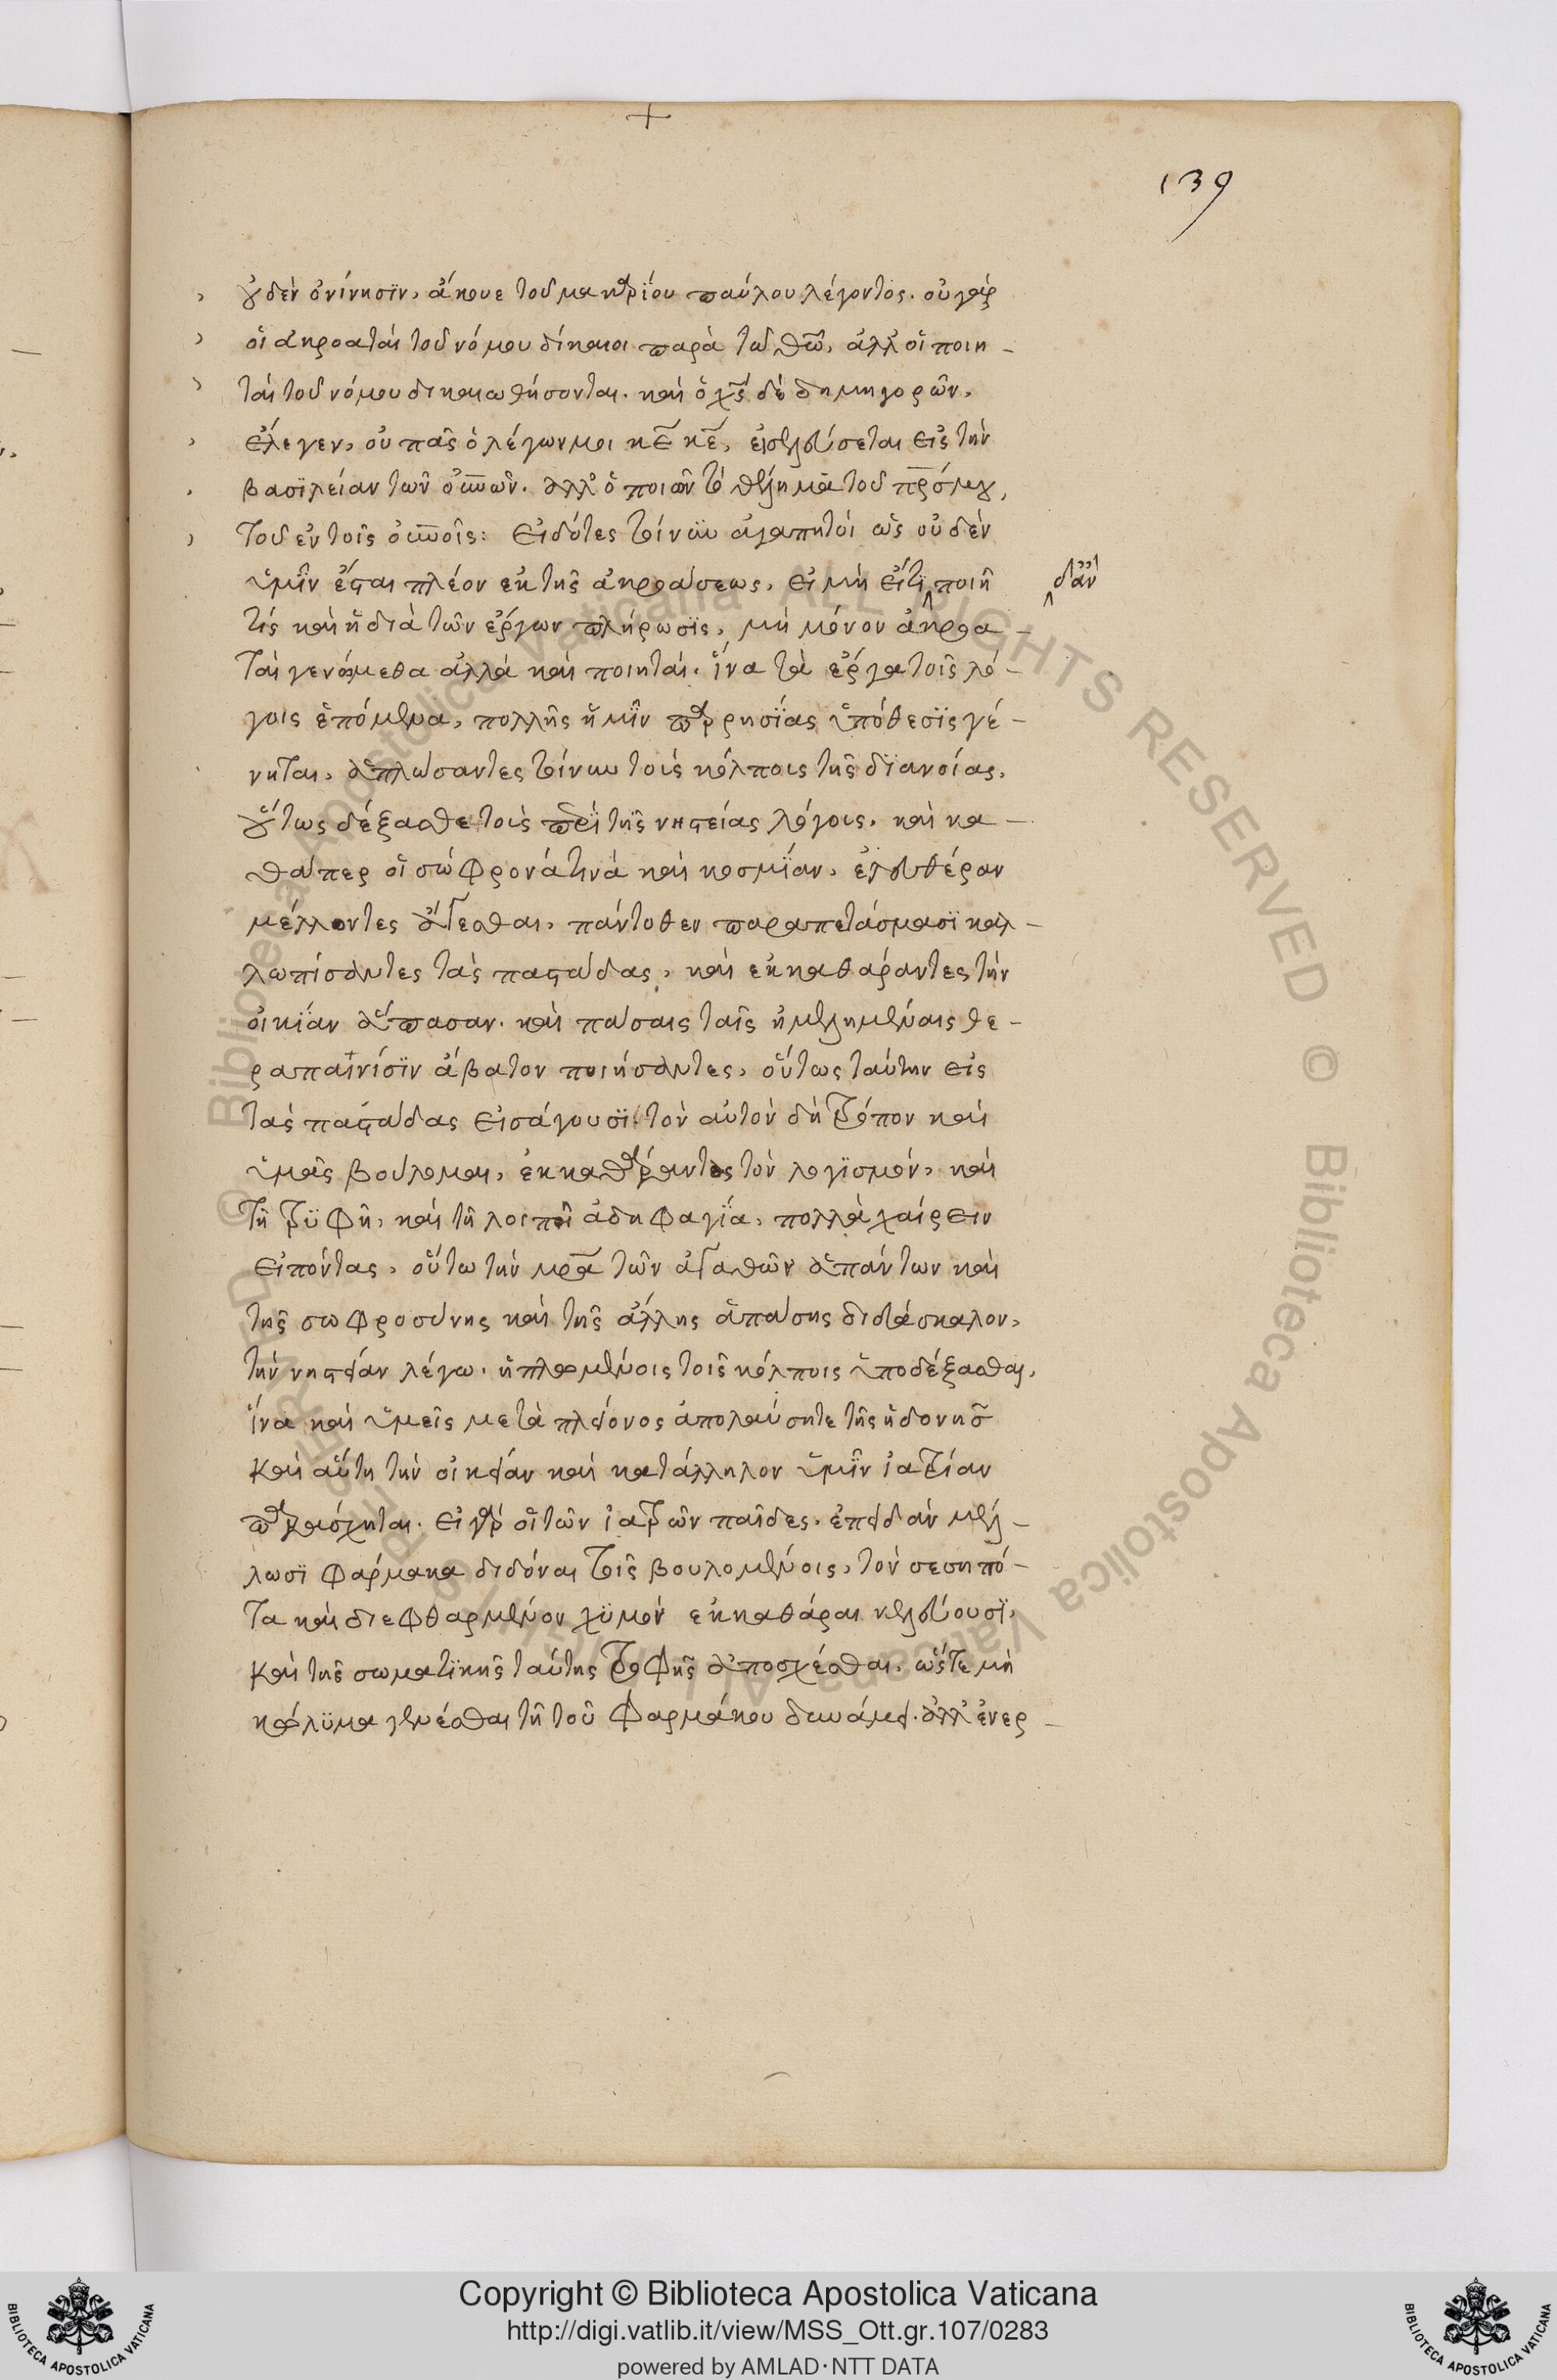 139
οὐδὲν ὀνίνησϊν, ἄκουε τοῦ μακαρίου παύλου λέγοντος. οὐ γὰρ
οἱ ἀκροαταὶ τοῦ νόμου δίκαιοι παρὰ τῶ θῶ, ἀλλ' οἱ ποιη-
ταὶ τοῦ νόμου δικαιωθήσονται. καὶ ὁ χς δὲ δημηγορῶν,
ἔλεγεν, οὐ πᾶς ὁ λέγων μοι κε κε, εἰσελεύσεται εἰς τὴν
βασϊλείαν τῶν οὐνῶν. ἀλλ' ὁ ποιῶν τὸ θέλημα τοῦ πρσ μου,
τοῦ ἐν τοῖς οὐνοῖς: εἰδότες τοίνυν ἀγαπητοὶ ὡς οὐδὲν
ὑμῖν ἔσται πλέον ἐκ τῆς ἀκροάσεως, εἰ μὴ ἐπὶ ποιῆ
δἂν
τις καὶ ἡ διὰ τῶν ἔργων πλήρωσϊς, μὴ μόνον ἀκροα-
ταὶ γενώμεθα ἀλλὰ καὶ ποιηταὶ. ἵνα τὰ ἔργα τοῖς λό-
γοις ἑπόμενα, πολλῆς ἡμῖν παρρησίας ὑπόθεσϊς γέ-
νηται, ἁπλώσαντες τοίνυν τοὺς κόλποις τῆς δϊανοίας,
οὕτως δέξασθε τοὺς περὶ τῆς νηστείας λόγοις. καὶ κα-
θάπερ οἱ σώφρονά τινὰ καὶ κοσμΐαν, ἐλευθέραν
μέλλοντες ἄγεσθαι, πάντοθεν παραπετάσμασϊ καλ-
λωπίσαντες τὰς παστάδας, καὶ ἐκκαθάραντες τὴν
οἰκΐαν ἅπασαν. καὶ πάσαις ταῖς ἠμελημέναις θε-
ραπαινίσϊν ἄβατον ποιήσαντες, οὕτως ταύτην εἰς
τὰς παστάδας εἰσάγουσϊ. τὸν αὐτὸν δὴ τρόπον καὶ
ὑμᾶς βούλομαι, ἐκκαθάραντες τὸν λογϊσμόν, καὶ
τῆ τρυφῆ, καὶ τῆ λοιπῆ ἀδηφαγΐα, πολλὰ χαίρειν
εἰπόντας, οὕτω τὴν μρα τῶν ἀγαθῶν ἁπάντων καὶ
τῆς σωφροσύνης καὶ τῆς ἄλλης ἁπάσης διδάσκαλον,
τὴν νηστείαν λέγω. ἡπλωμένοις τοῖς κόλποις ὑποδέξασθαι,
ἵνα καὶ ὑμεῖς μετὰ πλείονος ἀπολαύσητε τῆς ἡδονῆς
καὶ αὕτη τὴν οἰκείαν καὶ κατάλληλον ὑμῖν ἰατρίαν
παράσχηται. εἰ γὰρ οἱ τῶν ἰατρῶν παῖδες, ἐπειδὰν μέλ-
λωσϊ φάρμακα διδόναι τοῖς βουλομένοις, τὸν σεσηπό-
τα καὶ διεφθαρμένον χϋμὸν ἐκκαθάραι κελεύουσϊ,
καὶ τῆς σωματϊκῆς ταύτης τροφῆς ἀποσχέσθαι, ὥστε μὴ
κώλϋμα γενέσθαι τῆ τοῦ φαρμάκου δυνάμει. ἀλλ' ἐνερ-
Copyright © Biblioteca Apostolica Vaticana
http://digi.vatlib.it/view/MSS_Ott.gr.107/0283
powered by AMLAD·NTT DATA